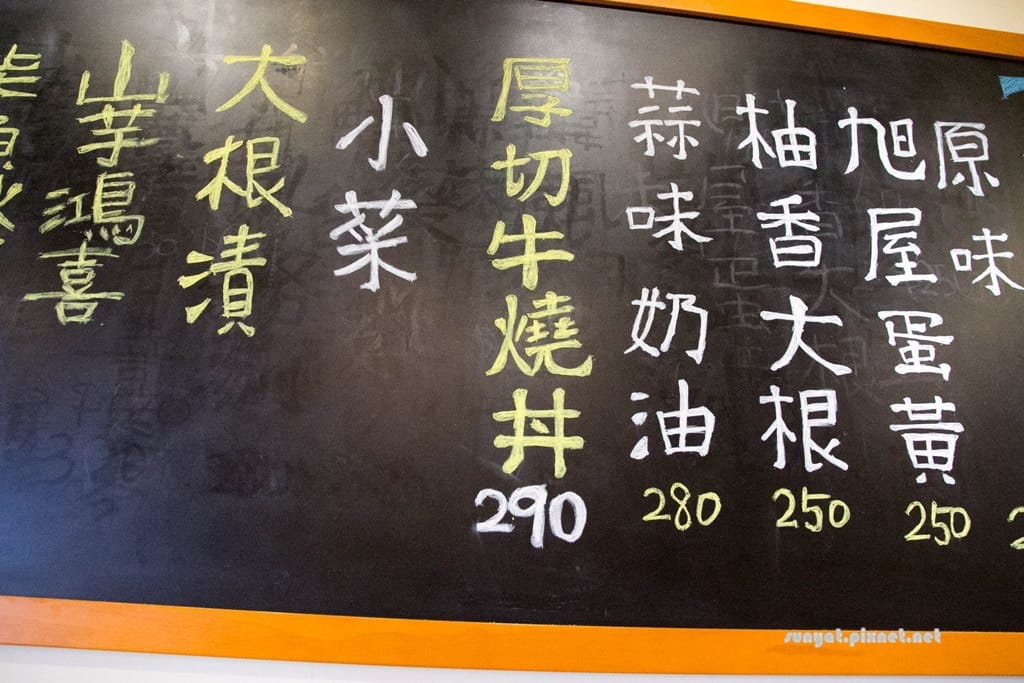 原味
旭屋蛋黃
250
柚香大根
250
蒜味奶油
280
厚切牛燒丼
290
小菜
大根漬
山芋鴻喜
sunyat.pixnet.net